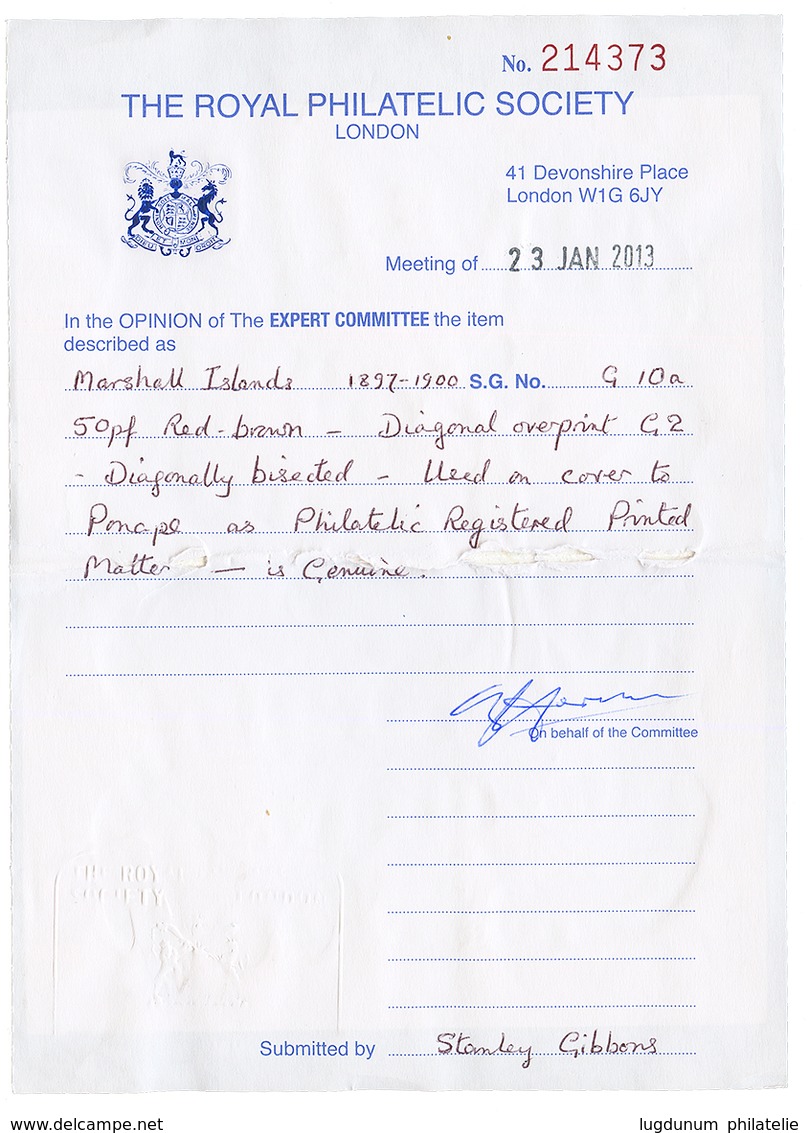 No. 214373
THE ROYAL PHILATELIC SOCIETY
LONDON
41 Devonshire Place
London W1G 6JY
Meeting of 23 JAN 2013
In the OPINION of The EXPERT COMMITTEE the item
described as
Marshall Islands 1897-1900 S.G. No. G 10a
50pf Red-brown - Diagonal overprint G2
- Diagonally bisected - Used on cover to
Ponape as Philatelic Registered Printed
Matter — is Genuine.
On behalf of the Committee
THE ROY
SOCIETY
Submitted by Stanley Gibbons
www.delcampe.net
lugdunum philatelie